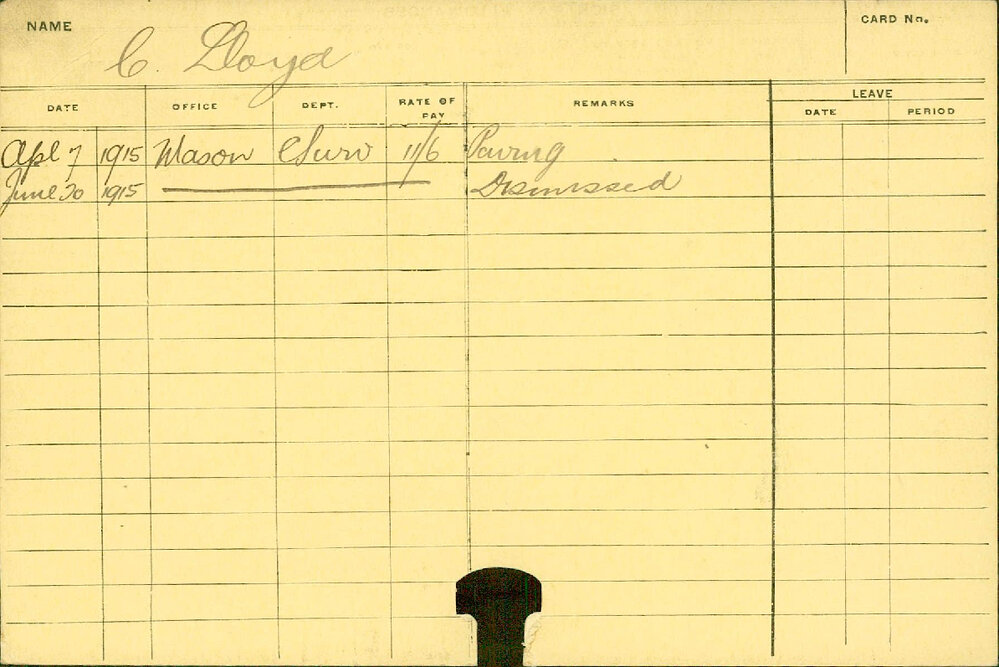 NAME C. Lloyd CARD No.
DATE OFFICE DEPT. RATE OF PAY REMARKS LEAVE
DATE PERIOD
Apl 7 1915 Mason CSurv 11/6 Paving
June 20 1915 Dismissed